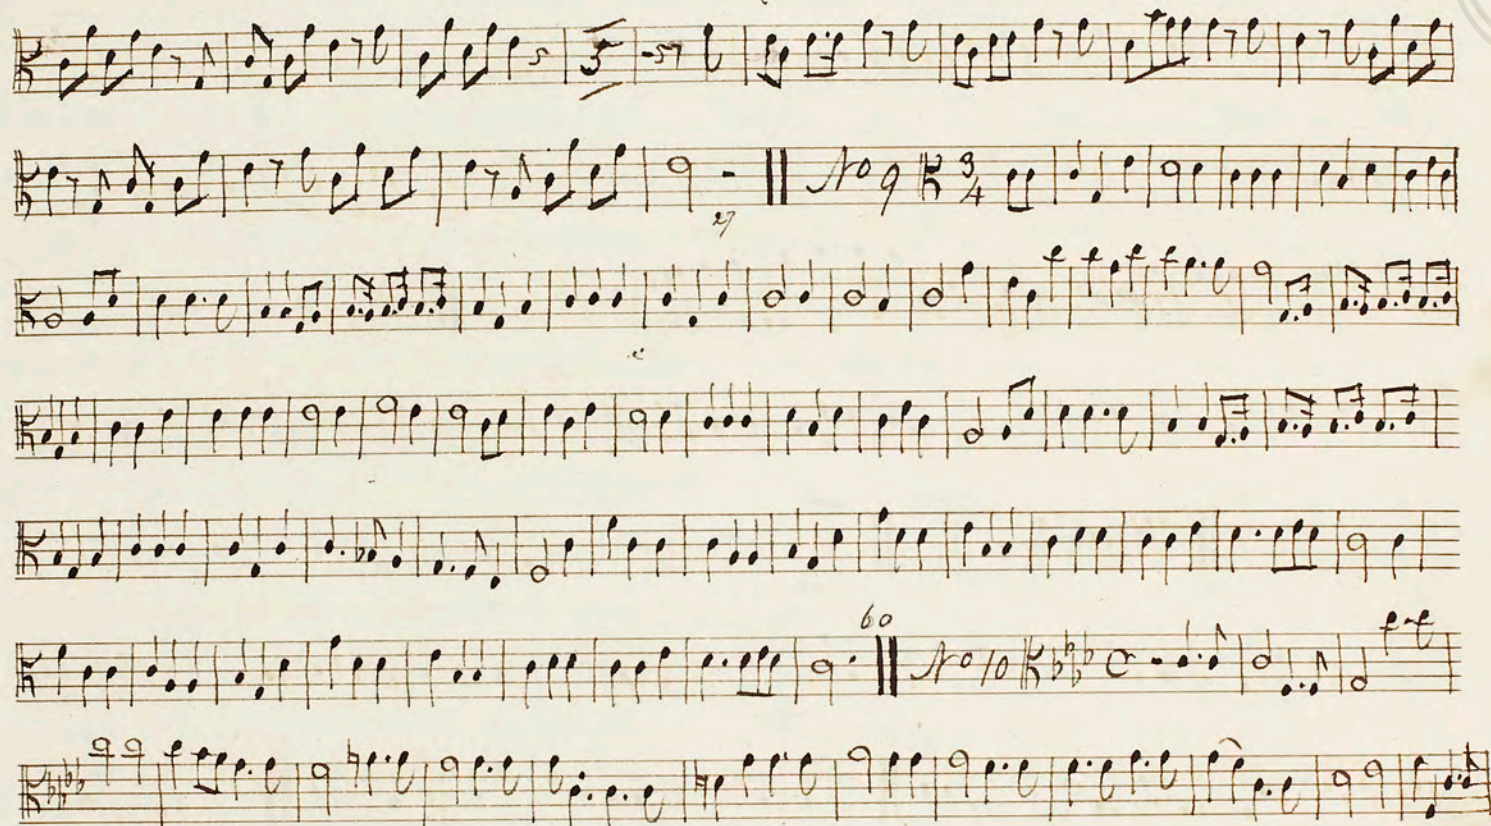 5
27
No 9 3/4
60
No 10 C